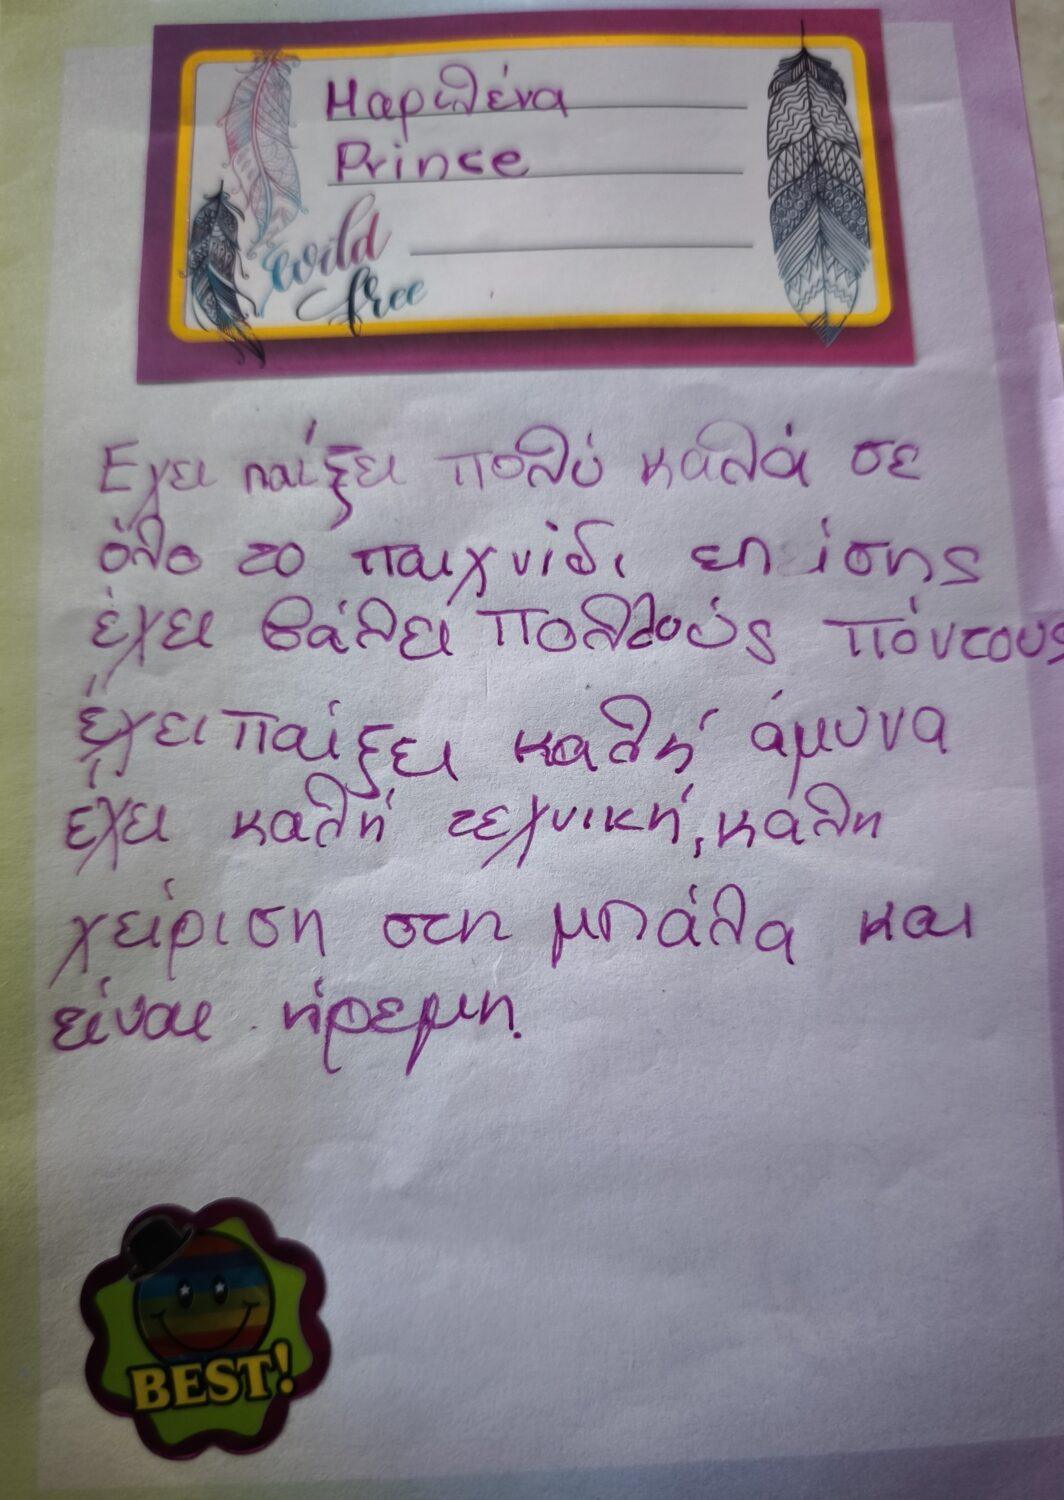 Μαριλένα
Prince
wild
free
Εχει παίξει πολύ καλά σε
όλο το παιχνίδι επίσης
έχει βάλει πολλούς πόντους
έχει παίξει καλή άμυνα
έχει καλή τεχνική, κάλη
χείριση στη μπάλα και
είναι ήρεμη.
BEST!